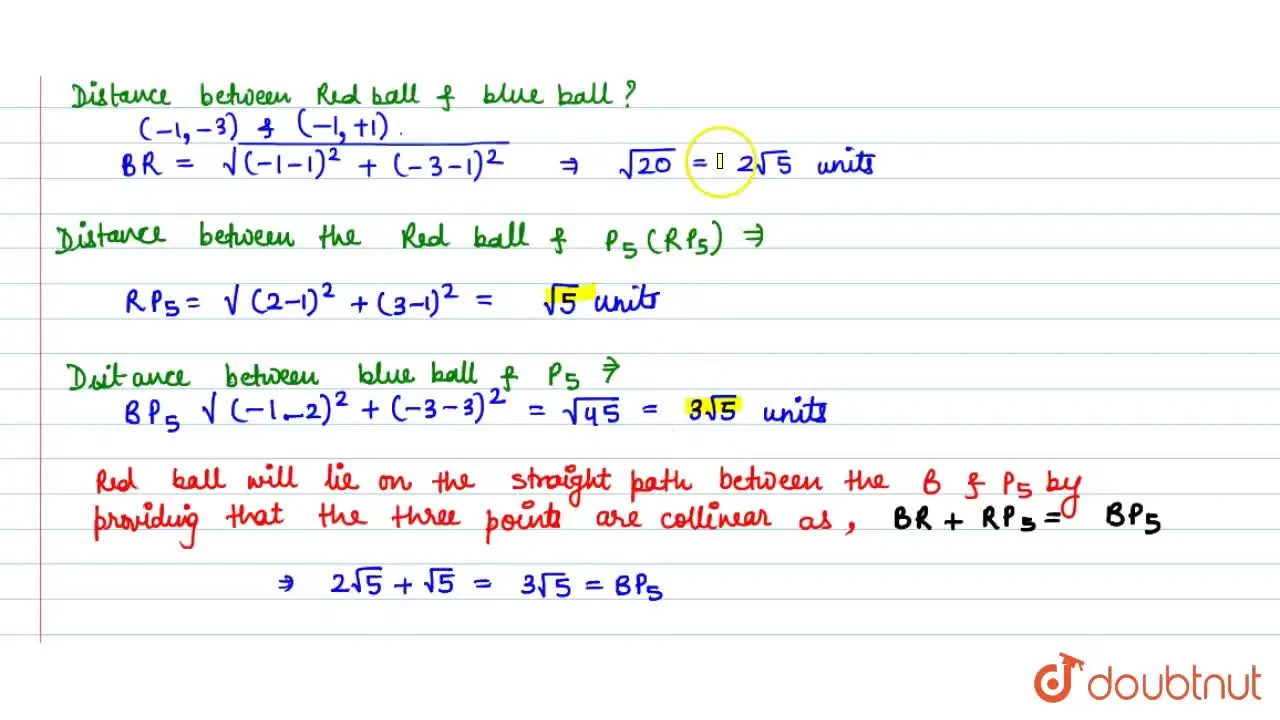 Distance between Red ball & blue ball?
(-1,-3) & (-1,+1).
BR = √(-1-1)² + (-3-1)² ⇒ √20 = 2√5 units
Distance between the Red ball & P₅(RP₅) ⇒
RP₅ = √(2-1)² + (3-1)² = √5 units
Dsitance between blue ball & P₅ ⇒
BP₅ √(-1-2)² + (-3-3)² = √45 = 3√5 units
Red ball will lie on the straight path between the B & P₅ by
providing that the three points are collinear as, BR + RP₅ = BP₅
⇒ 2√5 + √5 = 3√5 = BP₅
doubtnut